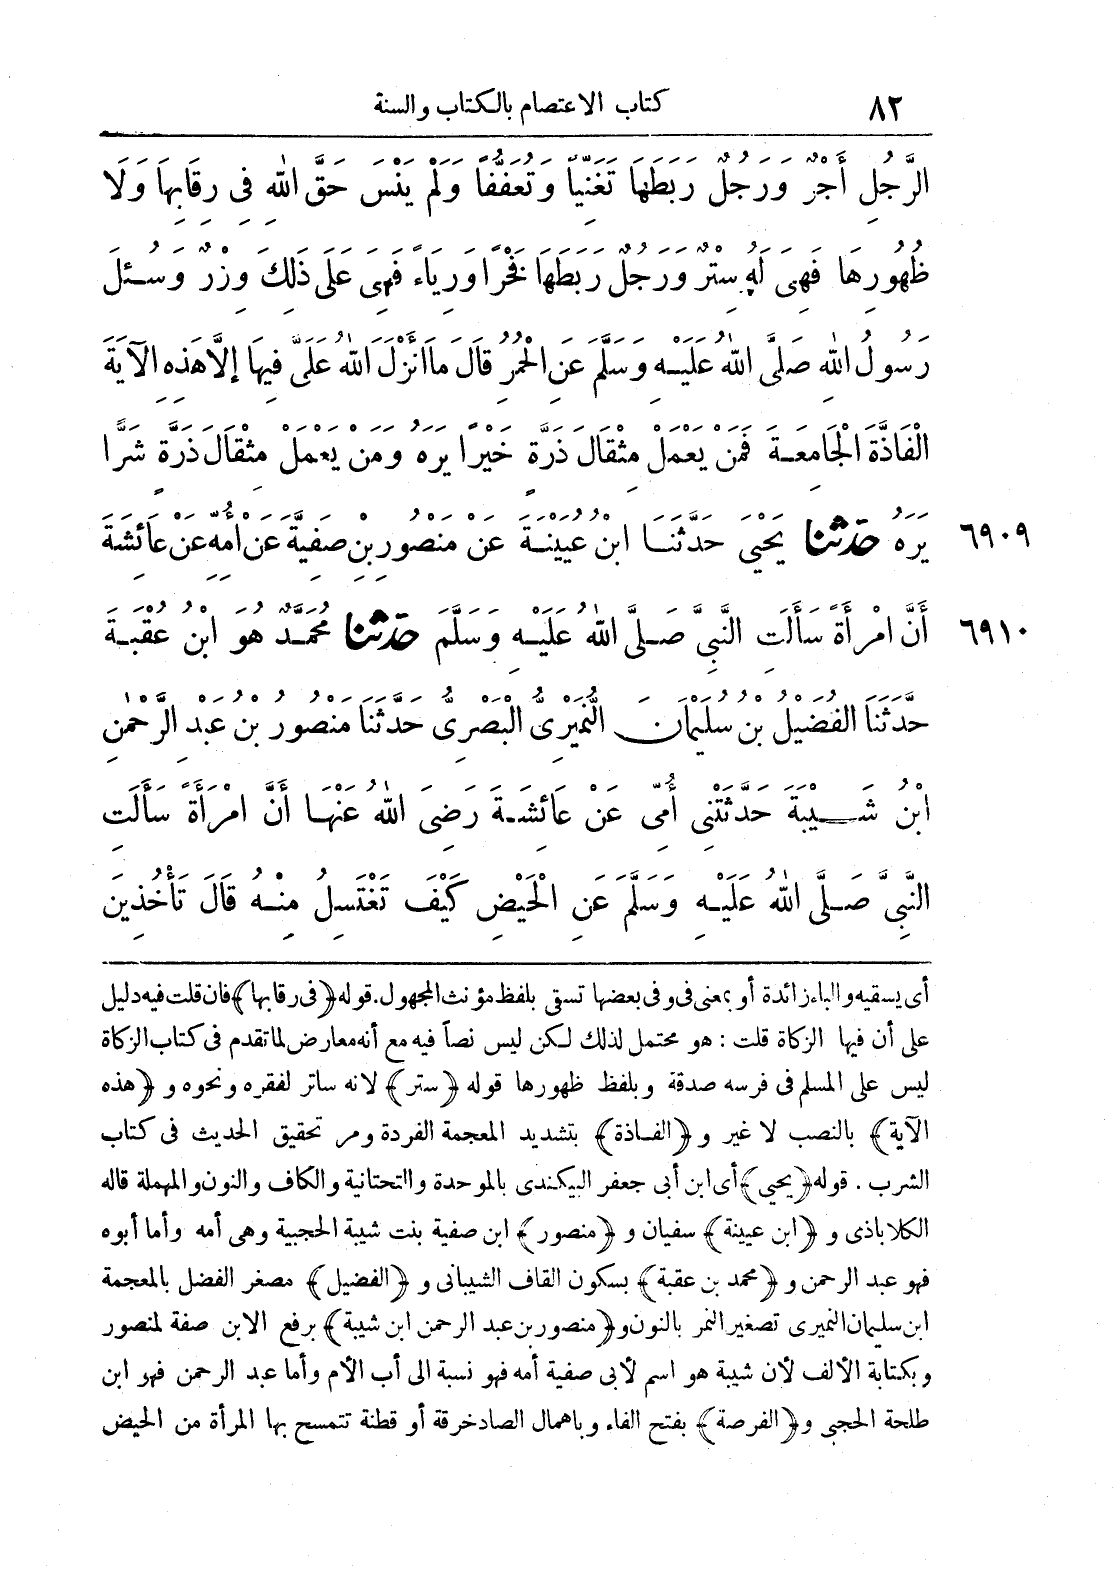 ٨٢ كتاب الاعتصام بالكتاب والسنة
الرَّجُلِ أَجْرٌ وَرَجُلٌ رَبَطَهَا تَغَنِّيًا وَتَعَفُّفًا وَلَمْ يَنْسَ حَقَّ اللهِ فِى رِقَابِهَا وَلَا
ظُهُورِهَا فَهِىَ لَهُ سِتْرٌ وَرَجُلٌ رَبَطَهَا فَخْرًا وَرِيَاءً فَهِىَ عَلَى ذَلِكَ وِزْرٌ وَسُئِلَ
رَسُولُ اللهِ صَلَّى اللهُ عَلَيْهِ وَسَلَّمَ عَنِ الْحُمُرِ قَالَ مَا أَنْزَلَ اللهُ عَلَىَّ فِيهَا إِلَّا هَذِهِ الآيَةَ
الْفَاذَّةَ الْجَامِعَةَ فَمَنْ يَعْمَلْ مِثْقَالَ ذَرَّةٍ خَيْرًا يَرَهُ وَمَنْ يَعْمَلْ مِثْقَالَ ذَرَّةٍ شَرًّا
٦٩٠٩ يَرَهُ حَدَّثَنَا يَحْيَى حَدَّثَنَا ابْنُ عُيَيْنَةَ عَنْ مَنْصُورِ بْنِ صَفِيَّةَ عَنْ أُمِّهِ عَنْ عَائِشَةَ
٦٩١٠ أَنَّ امْرَأَةً سَأَلَتِ النَّبِىَّ صَلَّى اللهُ عَلَيْهِ وَسَلَّمَ حَدَّثَنَا مُحَمَّدٌ هُوَ ابْنُ عُقْبَةَ
حَدَّثَنَا الفُضَيْلُ بْنُ سُلَيْمَانَ النُّمَيْرِىُّ الْبَصْرِىُّ حَدَّثَنَا مَنْصُورُ بْنُ عَبْدِ الرَّحْمٰنِ
ابْنُ شَيْبَةَ حَدَّثَتْنِى أُمِّى عَنْ عَائِشَةَ رَضِىَ اللهُ عَنْهَا أَنَّ امْرَأَةً سَأَلَتِ
النَّبِىَّ صَلَّى اللهُ عَلَيْهِ وَسَلَّمَ عَنِ الْحَيْضِ كَيْفَ تَغْتَسِلُ مِنْهُ قَالَ تَأْخُذِينَ
أى يسقيه والباء زائدة أو بمعنى فى وفى بعضها تسقى بلفظ مؤنث المجهول. قوله ﴿فى رقابها﴾ فان قلت فيه دليل
على أن فيها الزكاة قلت : هو محتمل لذلك لكن ليس نصاً فيه مع أنه معارض لما تقدم فى كتاب الزكاة
ليس على المسلم فى فرسه صدقة وبلفظ ظهورها قوله ﴿ستر﴾ لانه ساتر لفقره ونحوه و ﴿هذه
الآية﴾ بالنصب لا غير و ﴿الفاذة﴾ بتشديد المعجمة الفردة ومر تحقيق الحديث فى كتاب
الشرب . قوله ﴿يحيى﴾ أى ابن أبى جعفر البيكندى بالموحدة والتحتانية والكاف والنون والمهملة قاله
الكلاباذى و ﴿ابن عيينة﴾ سفيان و ﴿منصور﴾ ابن صفية بنت شيبة الحجبية وهى أمه وأما أبوه
فهو عبد الرحمن و ﴿محمد بن عقبة﴾ بسكون القاف الشيبانى و ﴿الفضيل﴾ مصغر الفضل بالمعجمة
ابن سليمان النميرى تصغير النمر بالنون و ﴿منصور بن عبد الرحمن ابن شيبة﴾ برفع الابن صفة لمنصور
وبكتابة الألف لأن شيبة هو اسم لأبى صفية أمه فهو نسبة الى أب الأم وأما عبد الرحمن فهو ابن
طلحة الحجبى و ﴿الفرصة﴾ بفتح الفاء وباهمال الصاد خرقة أو قطنة تتمسح بها المرأة من الحيض